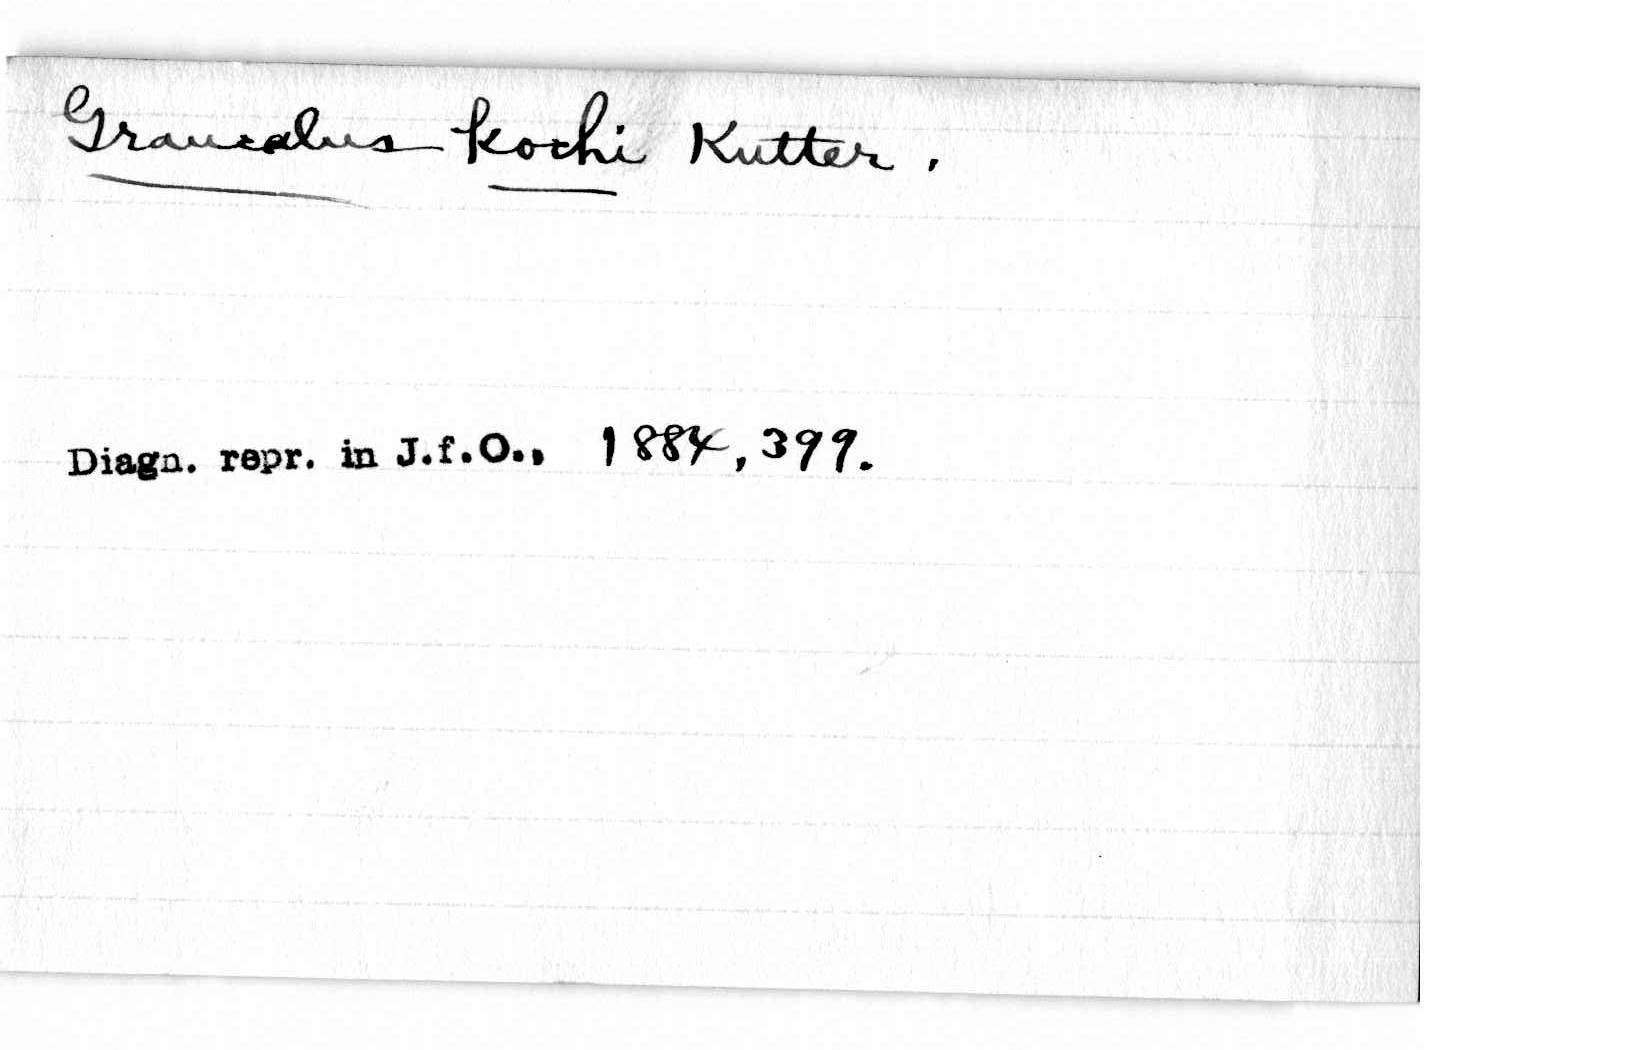 Graucalus kochi Kutter.
Diagn. repr. in J.f.O., 1884, 399.